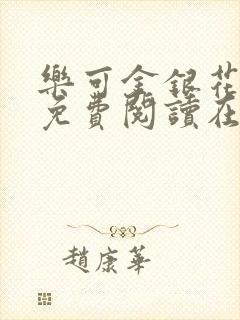 樂可金銀花
免費閱讀在
趙康華